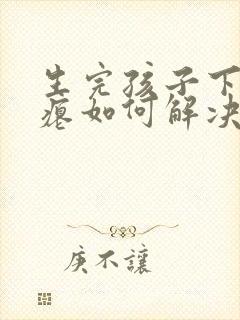 生完孩子下
瘪如何解决
庚不讓